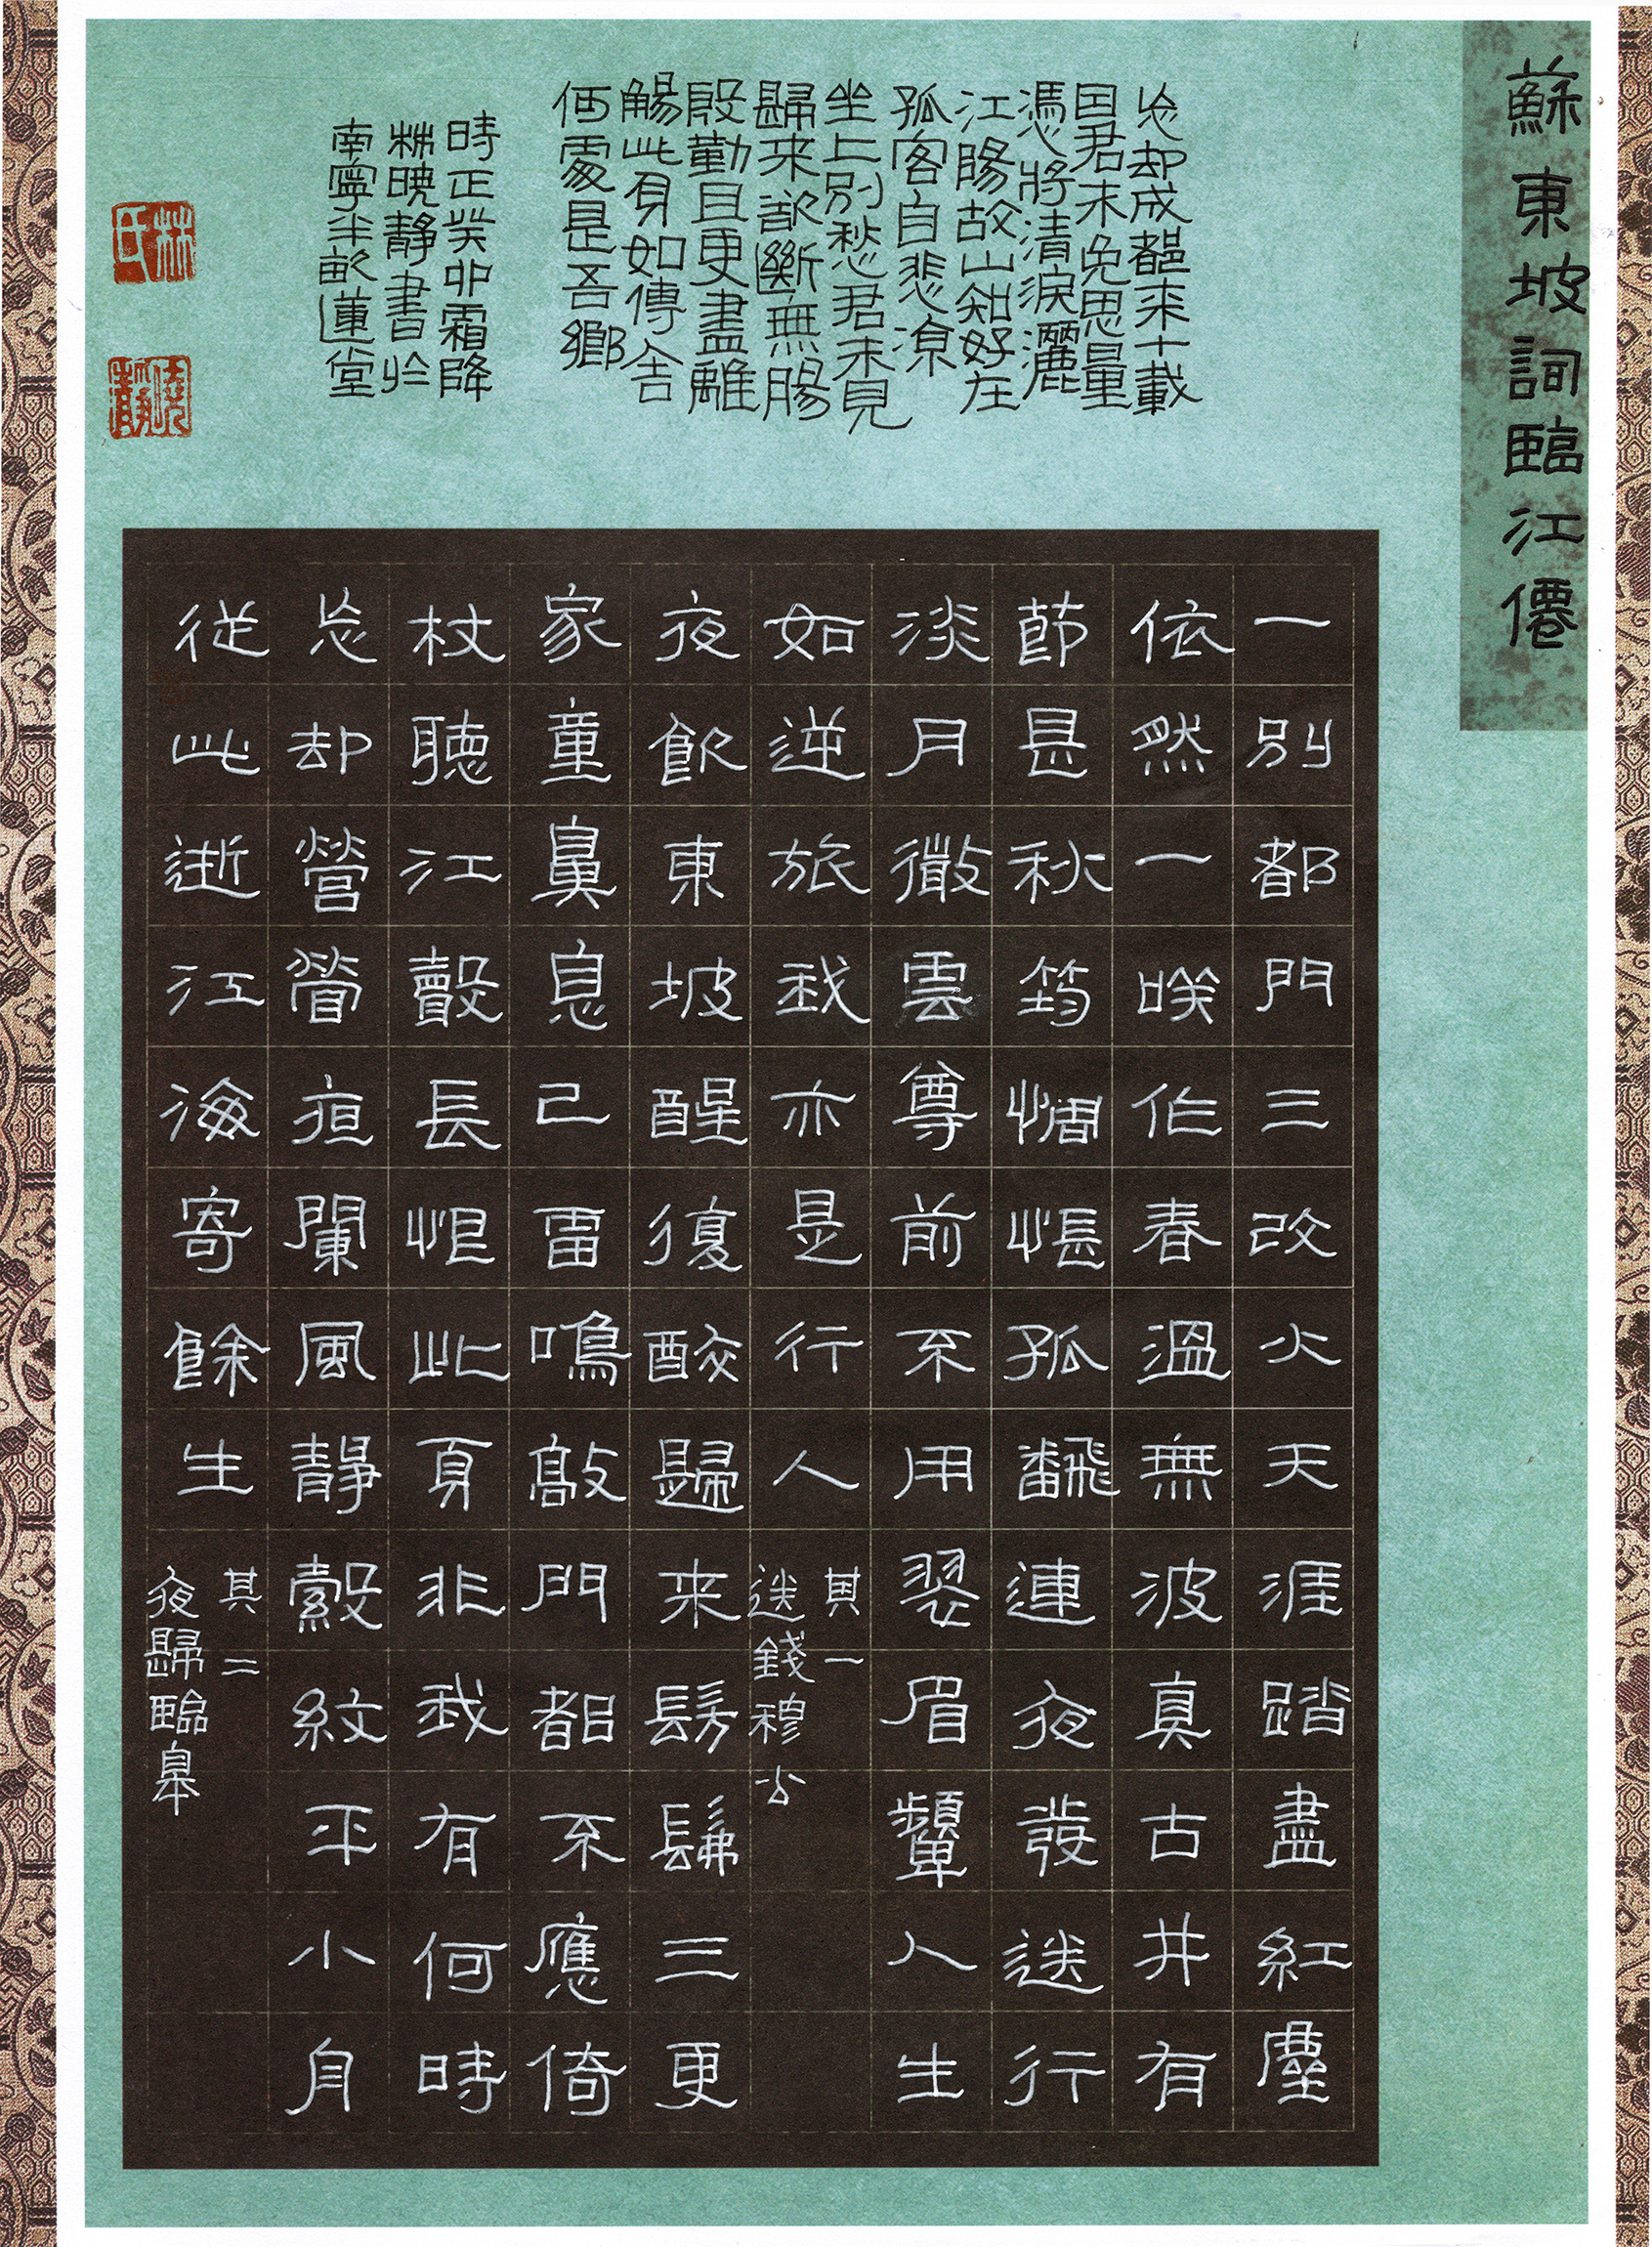 蘇東坡詞臨江僊
忘却成都来十載
因君未免思量
憑將清淚灑
江陽故山知好在
孤客自悲凉
坐上別愁君未見
歸来欲斷無腸
殷勤且更盡離
觴此身如傳舍
何處是吾鄉
時正癸卯霜降
林暁静書於
南寧半畝蓮堂
林氏
一別都門三改火天涯踏盡紅塵
依然一咲作春溫無波真古井有
節是秋筠惆悵孤颿連夜發送行
淡月微雲尊前不用翠眉顰人生
如逆旅我亦是行人
其一
送錢穆父
夜飲東坡醒復醉歸来髣髴三更
家童鼻息已雷鳴敲門都不應倚
杖聽江聲長恨此身非我有何時
忘却營營夜闌風静縠紋平小舟
從此逝江海寄餘生
其二
夜歸臨皋